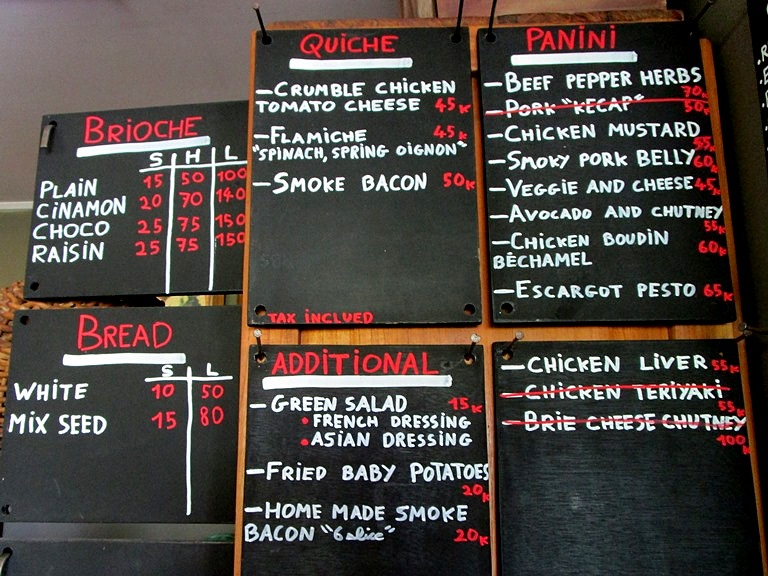 BRIOCHE
S H L
PLAIN 15 50 100
CINAMON 20 70 140
CHOCO 25 75 150
RAISIN 25 75 150
BREAD
S L
WHITE 10 50
MIX SEED 15 80
QUICHE
-CRUMBLE CHICKEN
TOMATO CHEESE 45K
-FLAMICHE 45K
"SPINACH, SPRING OIGNON"
-SMOKE BACON 50K
TAX INCLUED
ADDITIONAL
-GREEN SALAD 15K
• FRENCH DRESSING
• ASIAN DRESSING
-FRIED BABY POTATOES
20K
-HOME MADE SMOKE
BACON "6 slice" 20K
PANINI
-BEEF PEPPER HERBS
70K
-PORK "KECAP" 50K
-CHICKEN MUSTARD
55K
-SMOKY PORK BELLY 60K
-VEGGIE AND CHEESE 45K
-AVOCADO AND CHUTNEY
55K
-CHICKEN BOUDIN 60K
BÈCHAMEL
-ESCARGOT PESTO 65K
-CHICKEN LIVER 55K
-CHICKEN TERIYAKI
55K
-BRIE CHEESE CHUTNEY
100K